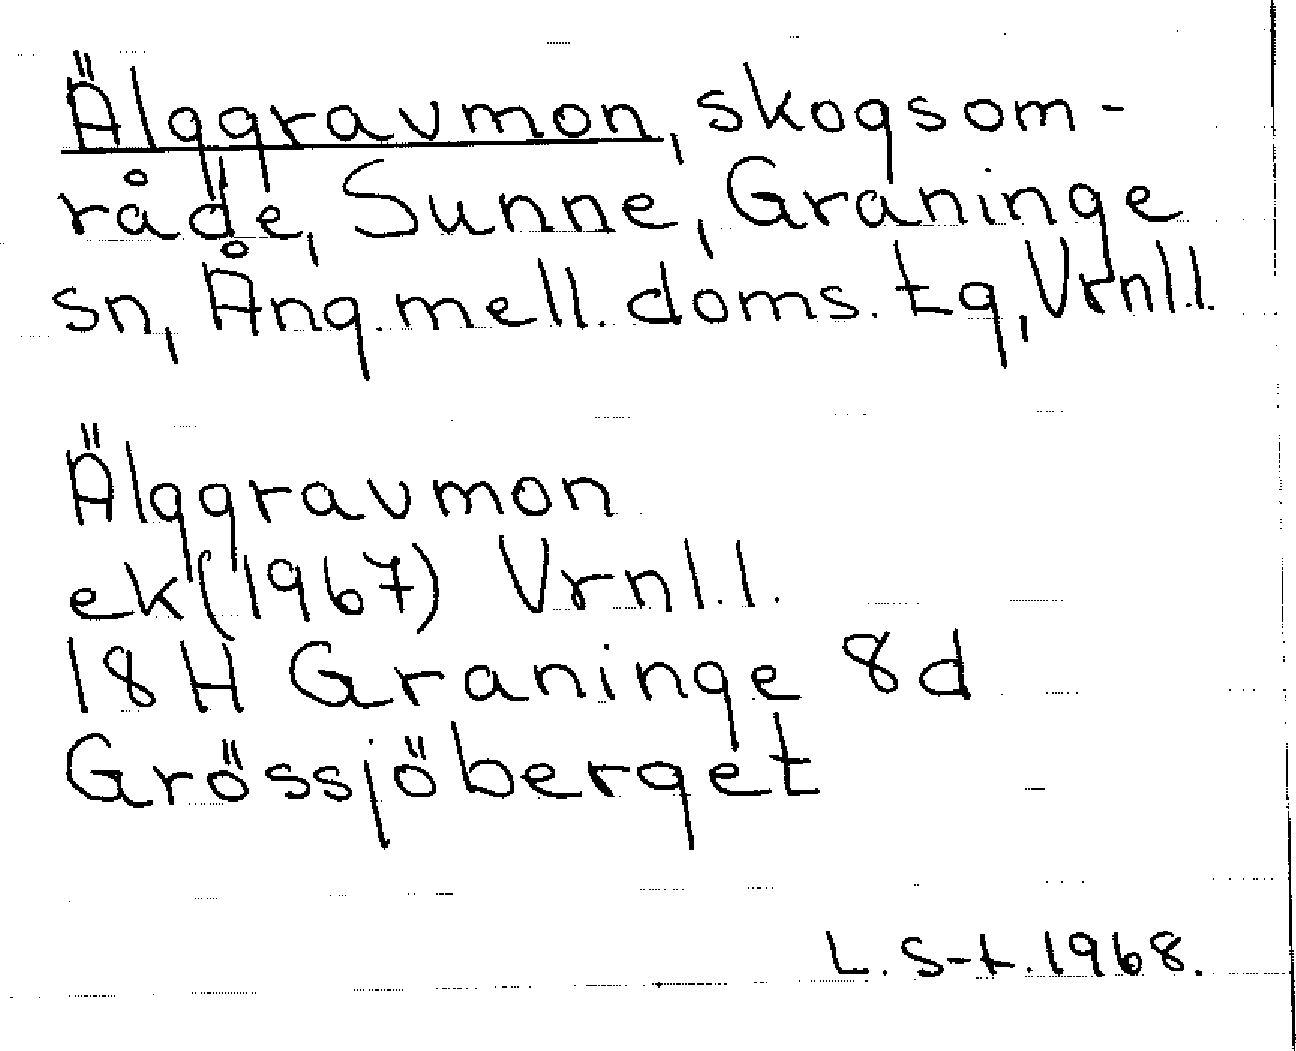 Älggravmon, skogsom-
råde, Sunne, Graninge
sn, Ång.mell.doms.tg, Vrnl.l.
Älggravmon
ek(1967) Vrnl.l.
18H Graninge 8d
Grössjöberget
L. S-t. 1968.